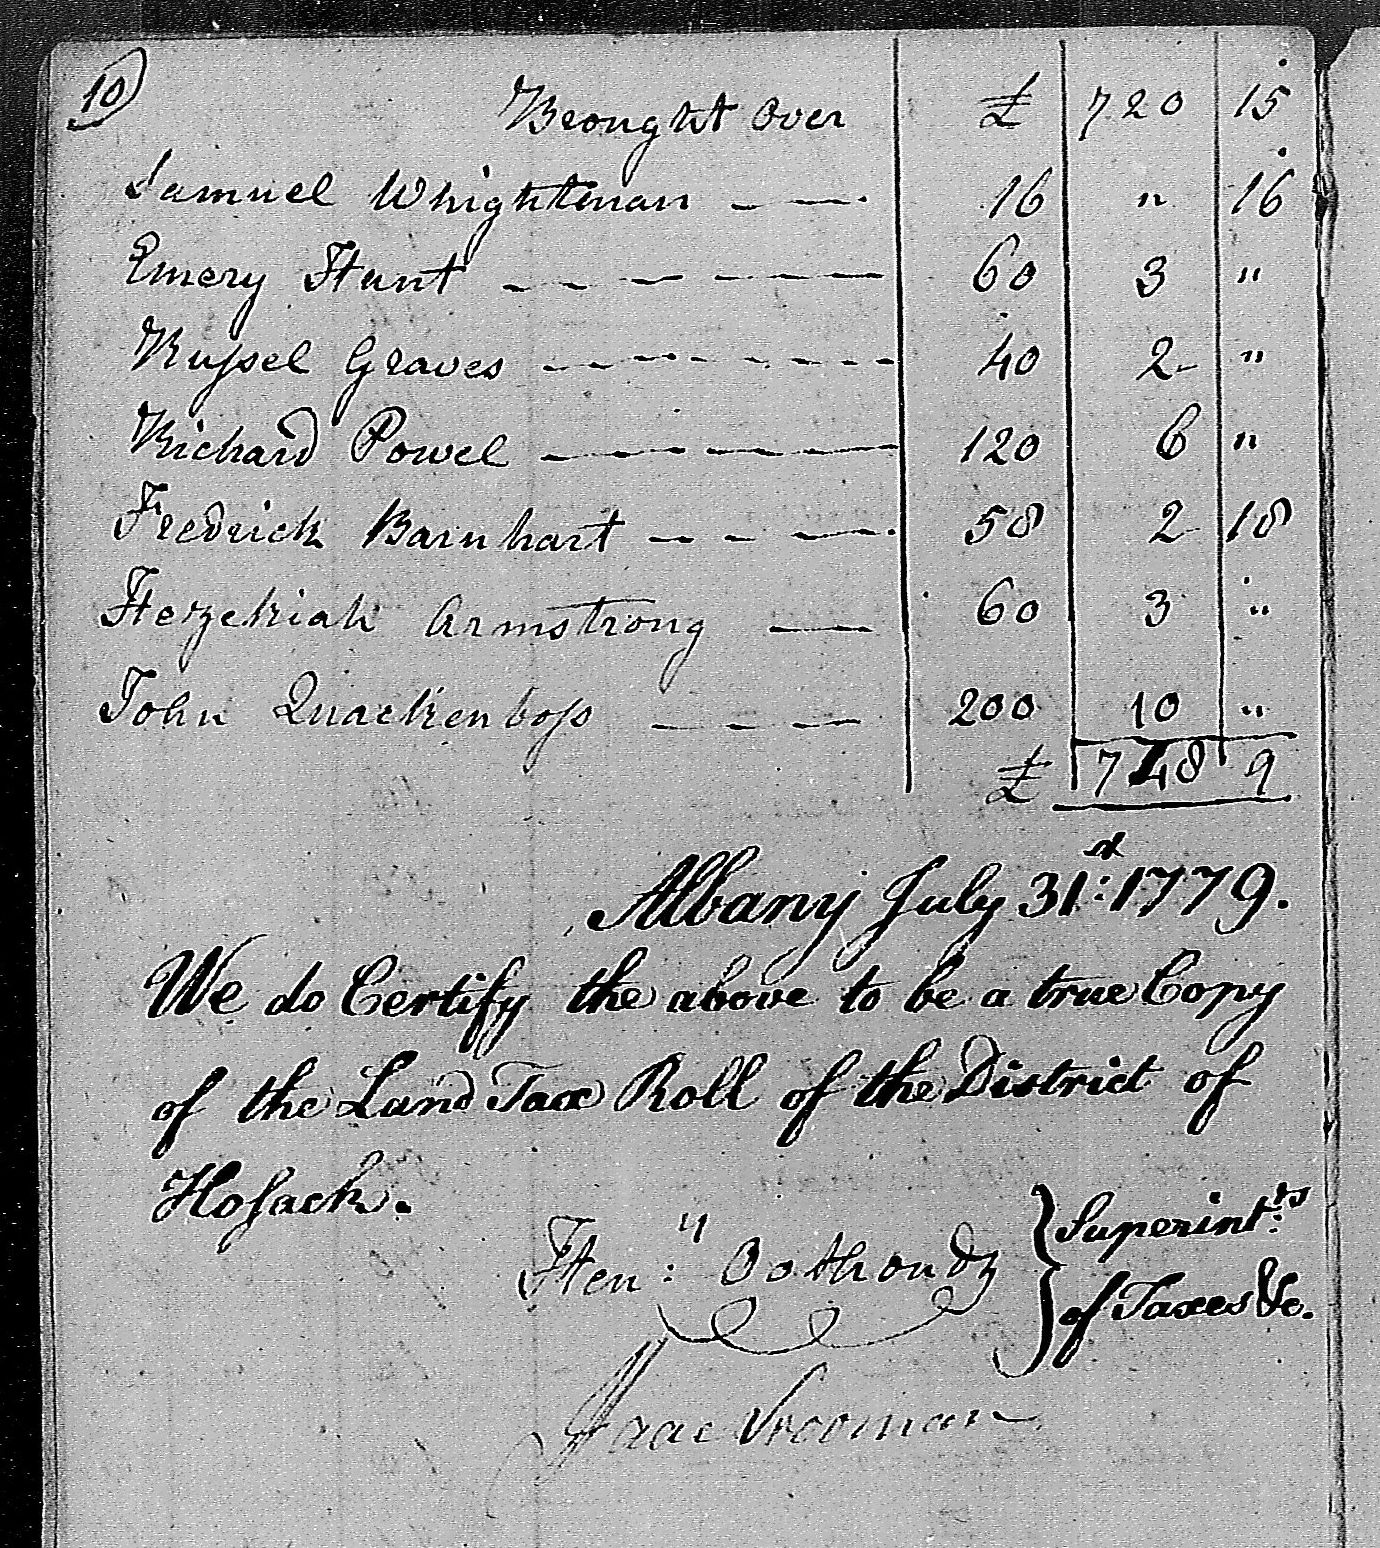 10
Brought Over £ 720 15
Samuel Whightman — — 16 " 16
Emery Hunt — — — — — 60 3 "
Rufsel Graves — — — — — 40 2 "
Richard Powel — — — — — 120 6 "
Fredrick Barnhart — — — 58 2 18
Hezekiah Armstrong — 60 3 "
John Quackenbofs — — — 200 10 "
£ 748 9
Albany July 31:st 1779.
We do Certify the above to be a true Copy
of the Land Tax Roll of the District of
Hosack.
Hen:y Oothoudt } Superint:ts
of Taxes &c.
Isaac Vrooman